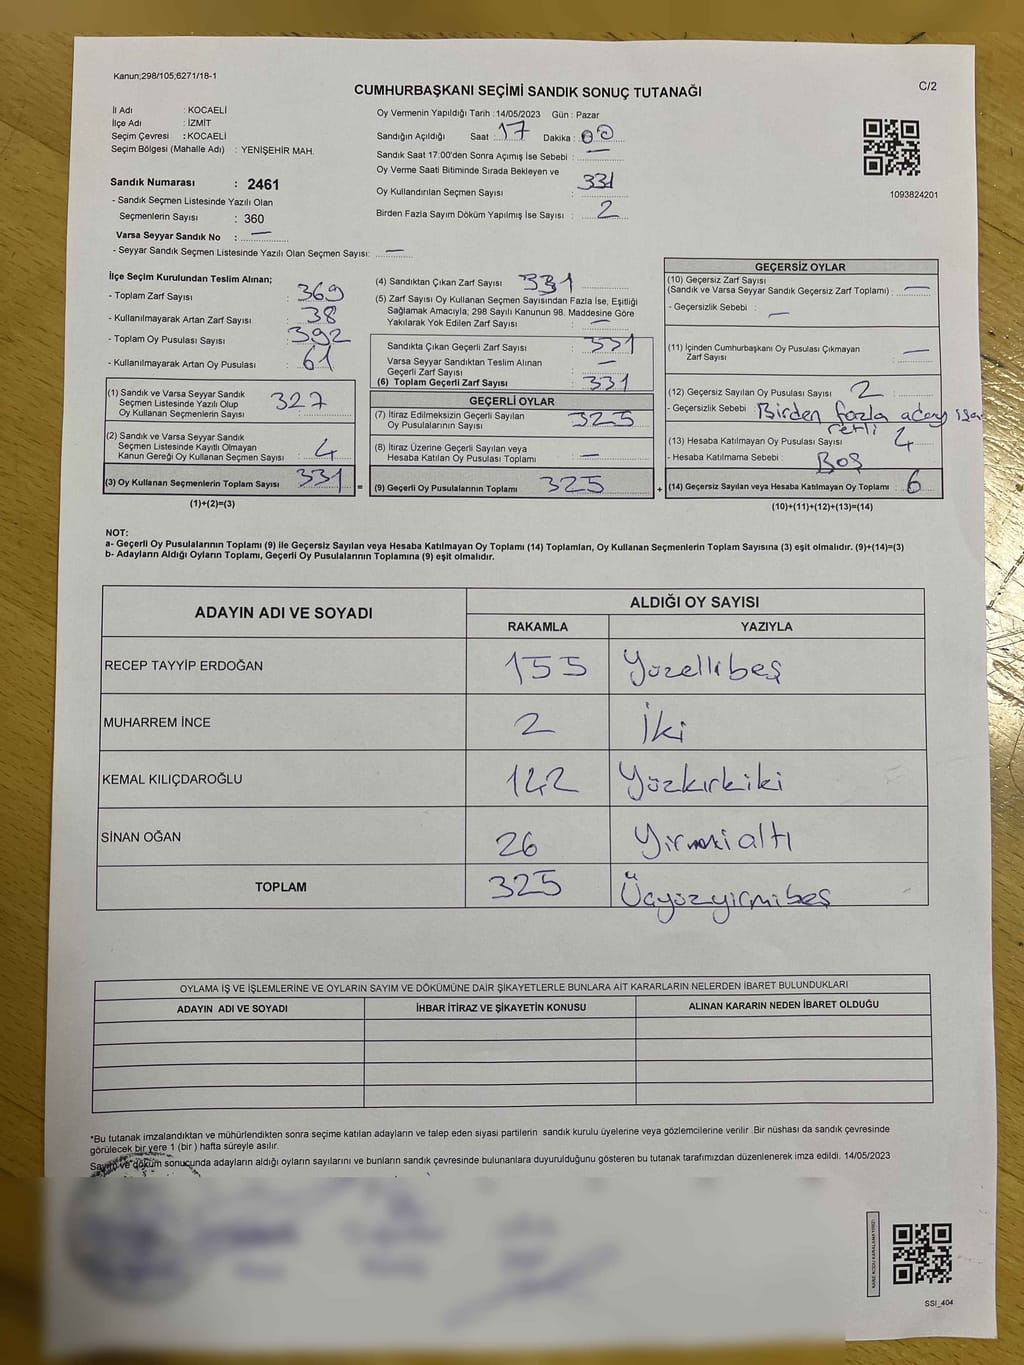 Kanun;298/105;6271/18-1
C/2
CUMHURBAŞKANI SEÇİMİ SANDIK SONUÇ TUTANAĞI
İl Adı : KOCAELİ
İlçe Adı : İZMİT
Seçim Çevresi : KOCAELİ
Seçim Bölgesi (Mahalle Adı) : YENİŞEHİR MAH.
Sandık Numarası : 2461
- Sandık Seçmen Listesinde Yazılı Olan
Seçmenlerin Sayısı : 360
Varsa Seyyar Sandık No : —
- Seyyar Sandık Seçmen Listesinde Yazılı Olan Seçmen Sayısı: —
Oy Vermenin Yapıldığı Tarih :14/05/2023 Gün : Pazar
Sandığın Açıldığı Saat : 17 Dakika : 00
Sandık Saat 17:00'den Sonra Açımış İse Sebebi : —
Oy Verme Saati Bitiminde Sırada Bekleyen ve
Oy Kullandırılan Seçmen Sayısı : 331
Birden Fazla Sayım Döküm Yapılmış İse Sayısı : 2
1093824201
İlçe Seçim Kurulundan Teslim Alınan;
- Toplam Zarf Sayısı : 369
- Kullanılmayarak Artan Zarf Sayısı : 38
- Toplam Oy Pusulası Sayısı : 392
- Kullanılmayarak Artan Oy Pusulası : 61
(1) Sandık ve Varsa Seyyar Sandık
Seçmen Listesinde Yazılı Olup
Oy Kullanan Seçmenlerin Sayısı : 327
(2) Sandık ve Varsa Seyyar Sandık
Seçmen Listesinde Kayıtlı Olmayan
Kanun Gereği Oy Kullanan Seçmen Sayısı : 4
(3) Oy Kullanan Seçmenlerin Toplam Sayısı : 331
(1)+(2)=(3)
=
(4) Sandıktan Çıkan Zarf Sayısı : 331
(5) Zarf Sayısı Oy Kullanan Seçmen Sayısından Fazla İse, Eşitliği
Sağlamak Amacıyla, 298 Sayılı Kanunun 98. Maddesine Göre
Yakılarak Yok Edilen Zarf Sayısı : —
Sandıkta Çıkan Geçerli Zarf Sayısı : 331
Varsa Seyyar Sandıktan Teslim Alınan
Geçerli Zarf Sayısı : —
(6) Toplam Geçerli Zarf Sayısı : 331
GEÇERLİ OYLAR
(7) İtiraz Edilmeksizin Geçerli Sayılan
Oy Pusulalarının Sayısı : 325
(8) İtiraz Üzerine Geçerli Sayılan veya
Hesaba Katılan Oy Pusulası Toplamı : —
(9) Geçerli Oy Pusulalarının Toplamı : 325
+
GEÇERSİZ OYLAR
(10) Geçersiz Zarf Sayısı
(Sandık ve Varsa Seyyar Sandık Geçersiz Zarf Toplamı) : —
- Geçersizlik Sebebi : —
(11) İçinden Cumhurbaşkanı Oy Pusulası Çıkmayan
Zarf Sayısı : —
(12) Geçersiz Sayılan Oy Pusulası Sayısı : 2
- Geçersizlik Sebebi : Birden fazla aday işa
retli
(13) Hesaba Katılmayan Oy Pusulası Sayısı : 4
- Hesaba Katılmama Sebebi : Boş
(14) Geçersiz Sayılan veya Hesaba Katılmayan Oy Toplamı : 6
(10)+(11)+(12)+(13)=(14)
NOT:
a- Geçerli Oy Pusulalarının Toplamı (9) ile Geçersiz Sayılan veya Hesaba Katılmayan Oy Toplamı (14) Toplamları, Oy Kullanan Seçmenlerin Toplam Sayısına (3) eşit olmalıdır. (9)+(14)=(3)
b- Adayların Aldığı Oyların Toplamı, Geçerli Oy Pusulalarının Toplamına (9) eşit olmalıdır.
ADAYIN ADI VE SOYADI
ALDIĞI OY SAYISI
RAKAMLA YAZIYLA
RECEP TAYYİP ERDOĞAN 155 Yüzellibeş
MUHARREM İNCE 2 İki
KEMAL KILIÇDAROĞLU 142 Yüzkırkiki
SİNAN OĞAN 26 Yirmialtı
TOPLAM 325 Üçyüzyirmibeş
OYLAMA İŞ VE İŞLEMLERİNE VE OYLARIN SAYIM VE DÖKÜMÜNE DAİR ŞİKAYETLERLE BUNLARA AİT KARARLARIN NELERDEN İBARET BULUNDUKLARI
ADAYIN ADI VE SOYADI İHBAR İTİRAZ VE ŞİKAYETİN KONUSU ALINAN KARARIN NEDEN İBARET OLDUĞU
*Bu tutanak imzalandıktan ve mühürlendikten sonra seçime katılan adayların ve talep eden siyasi partilerin sandık kurulu üyelerine veya gözlemcilerine verilir .Bir nüshası da sandık çevresinde
görülecek bir yere 1 (bir ) hafta süreyle asılır.
Sayım ve döküm sonucunda adayların aldığı oyların sayılarını ve bunların sandık çevresinde bulunanlara duyurulduğunu gösteren bu tutanak tarafımızdan düzenlenerek imza edildi. 14/05/2023
SSI_404